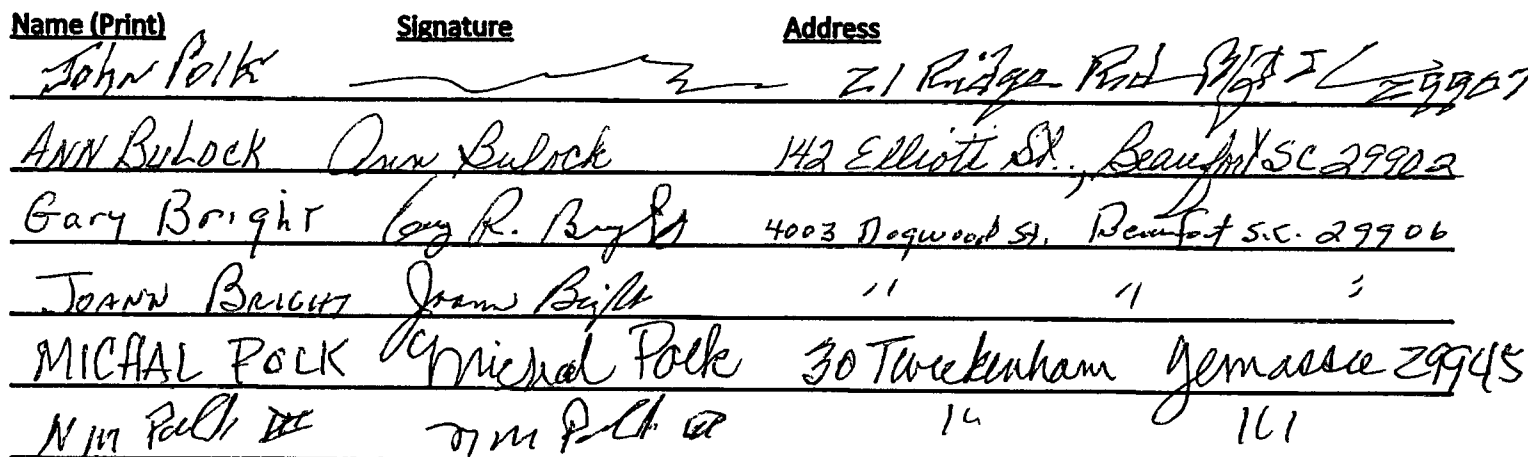 Name (Print) Signature Address
John Polk 21 Ridge Rd 29907
ANN BULOCK Ann Bulock 142 Elliott St., Beaufort SC 29902
Gary Bright Gary R. Bright 4003 Dogwood St. Beaufort S.C. 29906
JOANN BRIGHT Joann Bright " " "
MICHAL POLK Michal Polk 30 Twickenham Yemassee 29945
N M Polk III N M Polk III " "